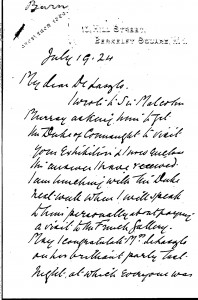 Burn
11, HILL STREET,
BERKELEY SQUARE, W.1.
July 19. 24
My dear De Laszlo.
I wrote to Sir Malcolm
Murray asking him to get
the Duke of Connaught to visit
your Exhibition & I now enclose
the answer I have received.
I am lunching with the Duke
next week when I will speak
to him personally about paying
a visit to the French Gallery.
May I congratulate Mrs de Laszlo
on her brilliant party last
night, at which everyone was